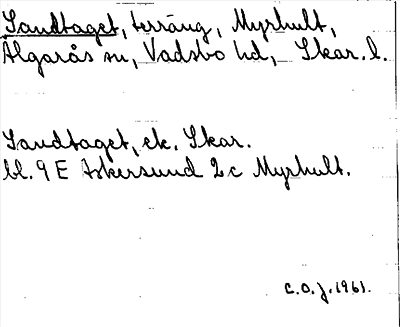 Sandtaget, terräng, Myrhult,
Älgarås sn, Vadsbo hd, Skar. l.
Sandtaget, ek. Skar.
bl. 9 E Askersund 2 c Myrhult.
C.O.J. 1961.